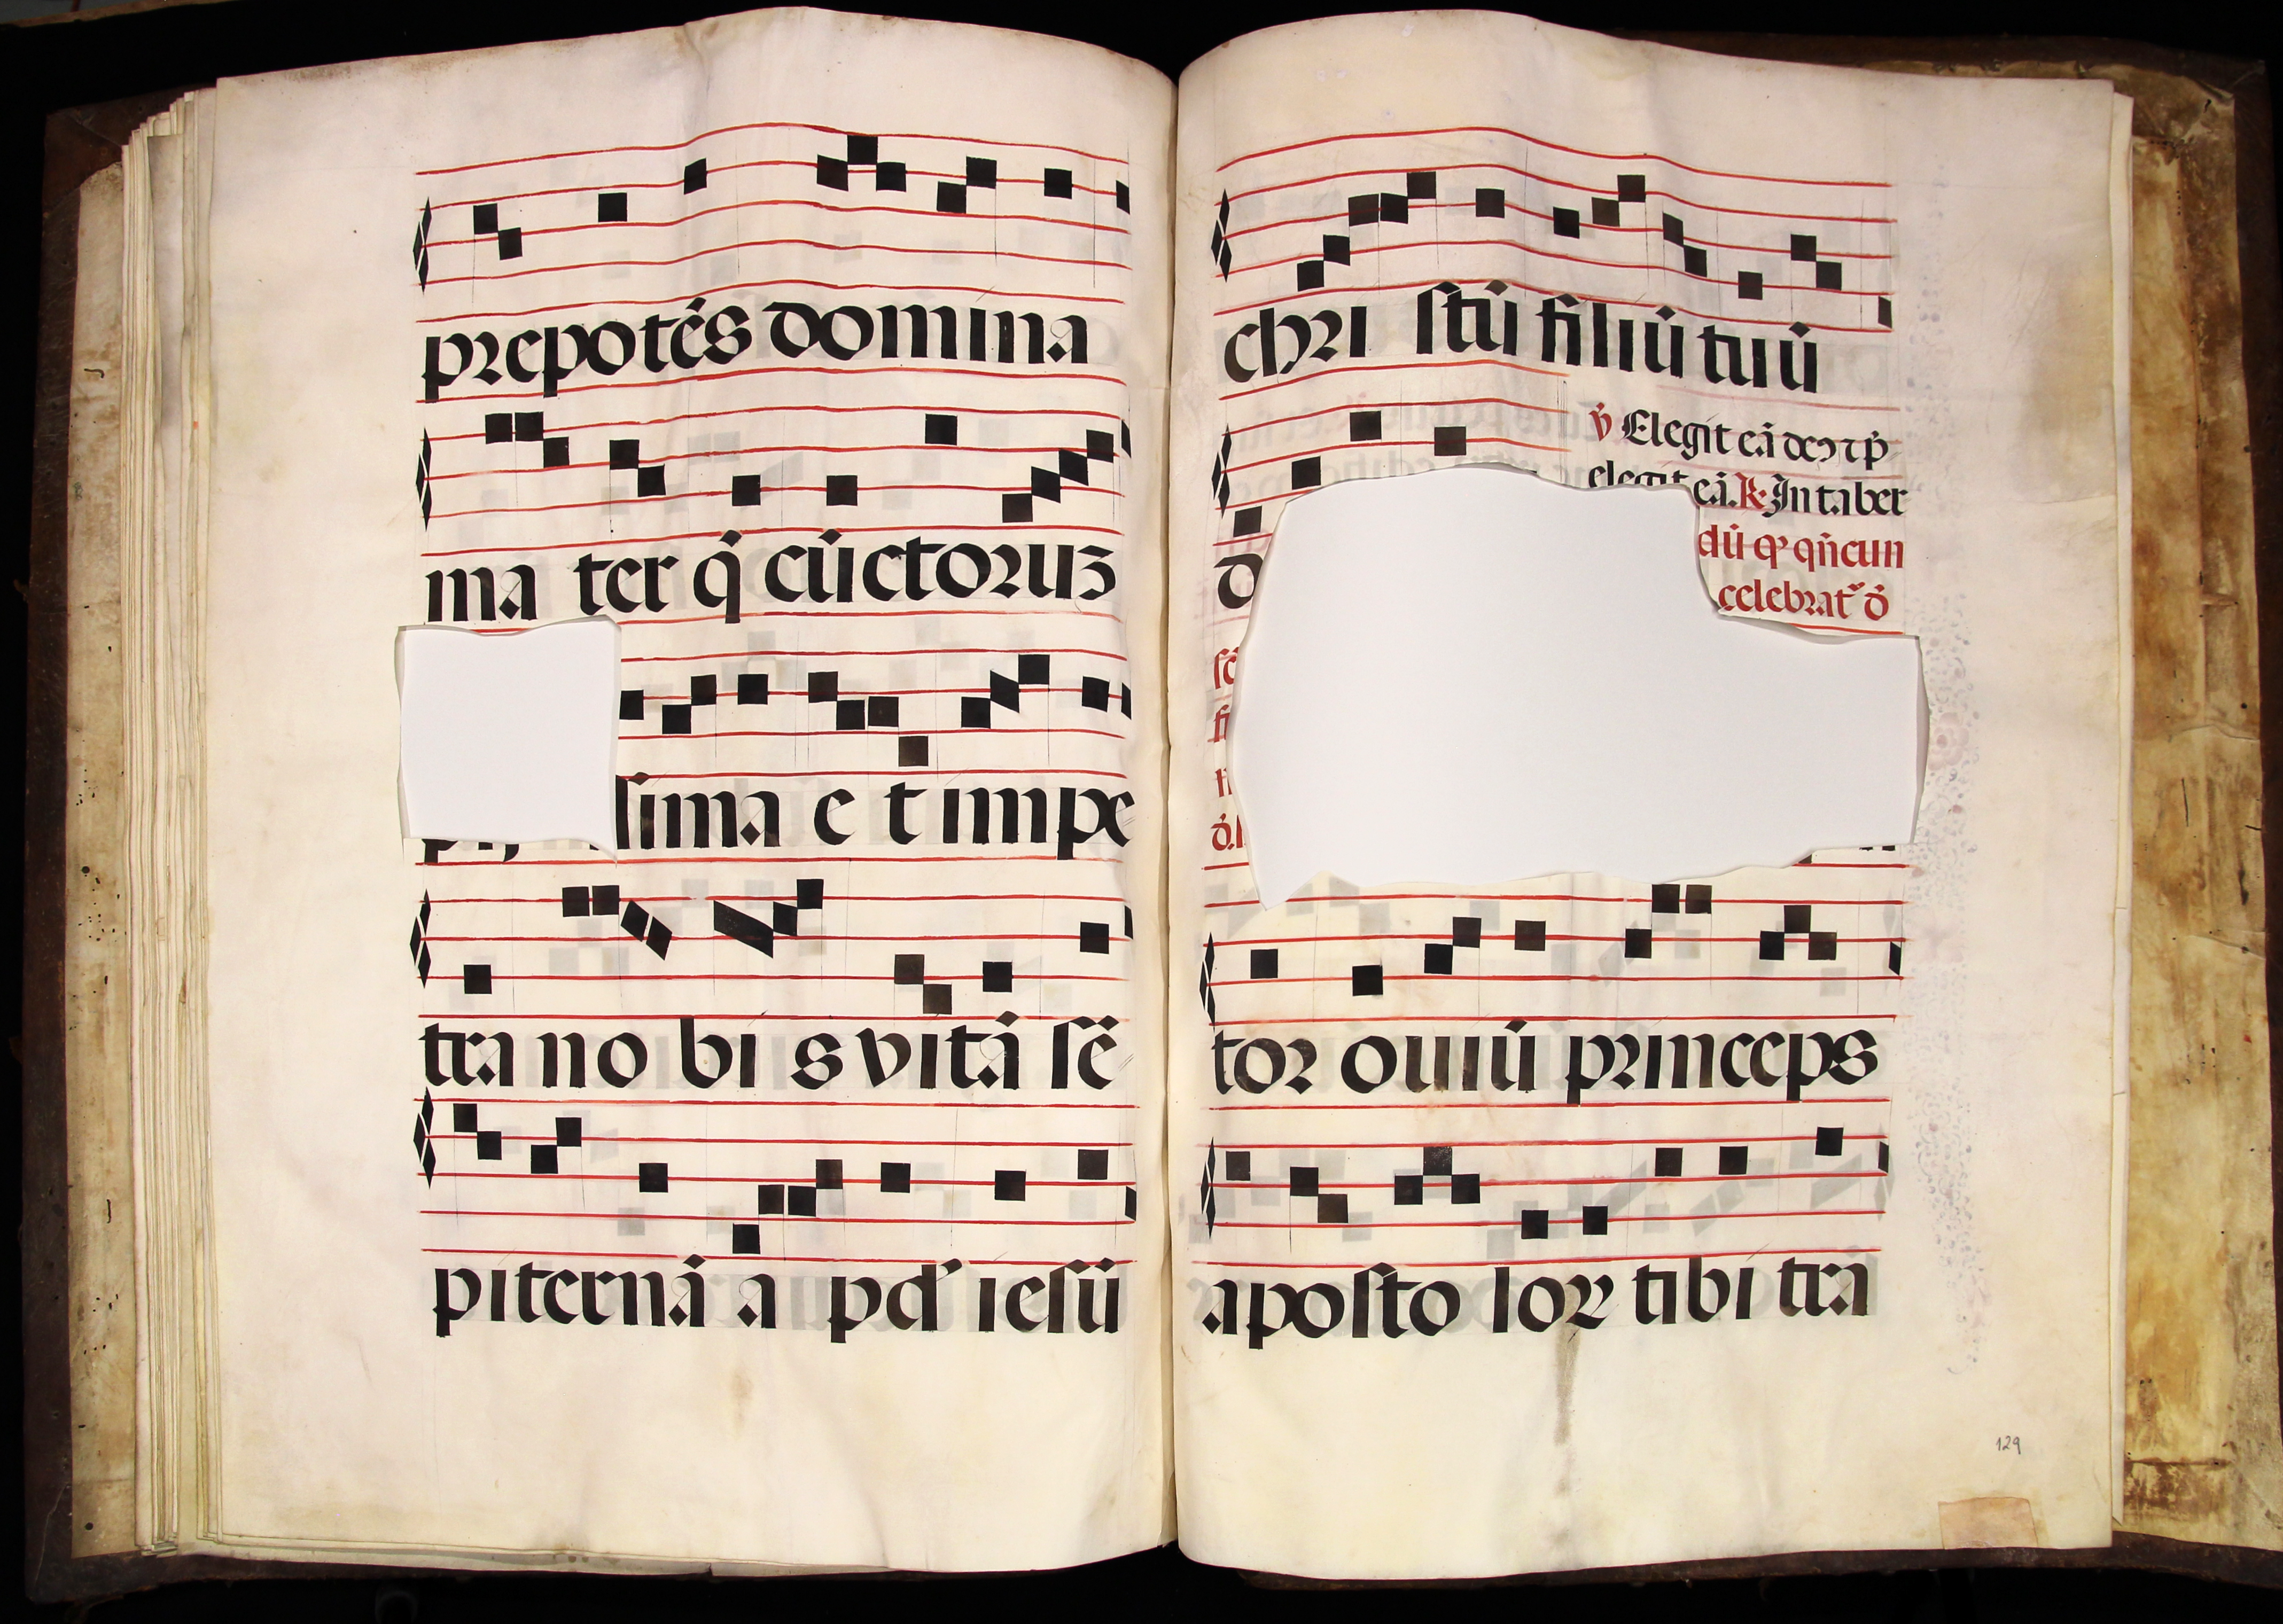 prepotẽs domina
ma ter q̃ cũctoruz
sima e t impe
tra no bi s vitã sẽ
piternã a pd' iesũ
chri stũ filiũ tuũ
v̉ Elegit eã deꝰ ⁊ p̃
elegit eã. ℟. In taber
dũ ꝙ qñcun
celebrat᷑ õ
tor ouiũ princeps
aposto loꝝ tibi tra
129